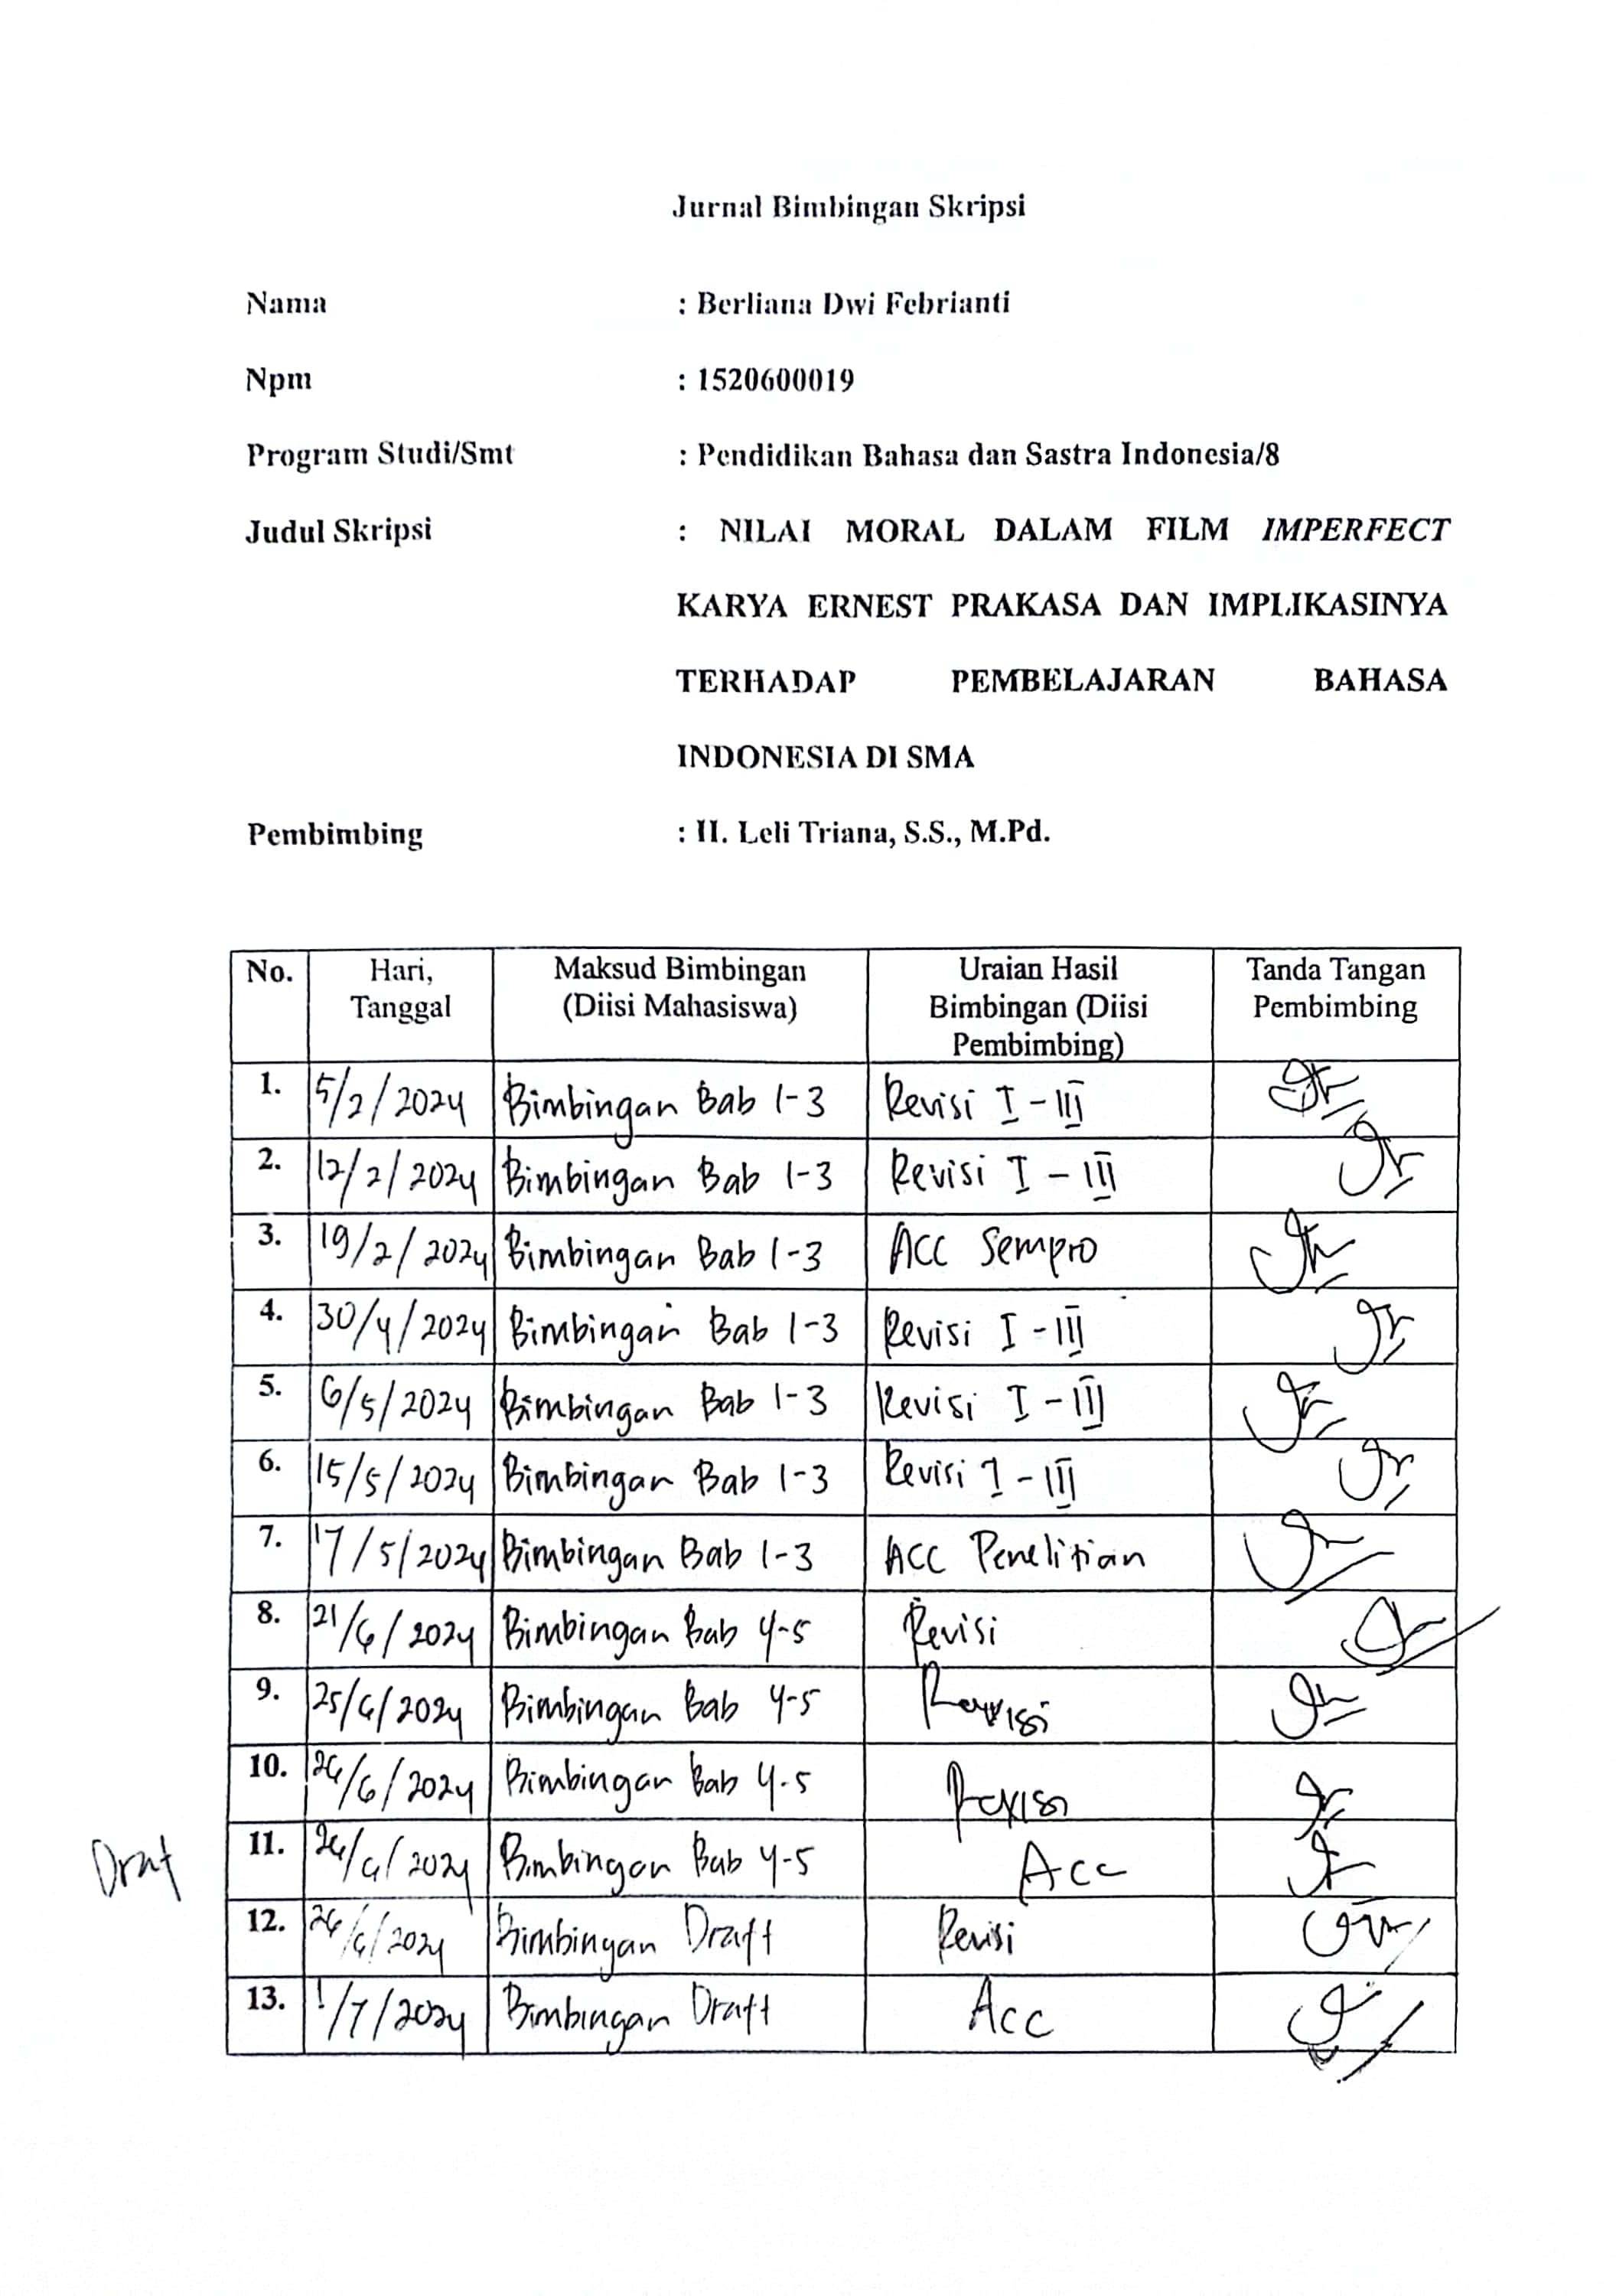 Jurnal Bimbingan Skripsi
Nama : Berliana Dwi Febrianti
Npm : 1520600019
Program Studi/Smt : Pendidikan Bahasa dan Sastra Indonesia/8
Judul Skripsi : NILAI MORAL DALAM FILM IMPERFECT
KARYA ERNEST PRAKASA DAN IMPLIKASINYA
TERHADAP PEMBELAJARAN BAHASA
INDONESIA DI SMA
Pembimbing : II. Leli Triana, S.S., M.Pd.
No. Hari, Tanggal Maksud Bimbingan (Diisi Mahasiswa) Uraian Hasil Bimbingan (Diisi Pembimbing) Tanda Tangan Pembimbing
1. 5/2/2024 Bimbingan Bab 1-3 Revisi I - III
2. 12/2/2024 Bimbingan Bab 1-3 Revisi I - III
3. 19/2/2024 Bimbingan Bab 1-3 ACC Sempro
4. 30/4/2024 Bimbingan Bab 1-3 Revisi I - III
5. 6/5/2024 Bimbingan Bab 1-3 Revisi I - III
6. 15/5/2024 Bimbingan Bab 1-3 Revisi I - III
7. 17/5/2024 Bimbingan Bab 1-3 ACC Penelitian
8. 21/6/2024 Bimbingan Bab 4-5 Revisi
9. 25/6/2024 Bimbingan Bab 4-5 Revisi
10. 26/6/2024 Bimbingan Bab 4-5 Revisi
Draf
11. 26/6/2024 Bimbingan Bab 4-5 Acc
12. 26/6/2024 Bimbingan Draft Revisi
13. 1/7/2024 Bimbingan Draft Acc